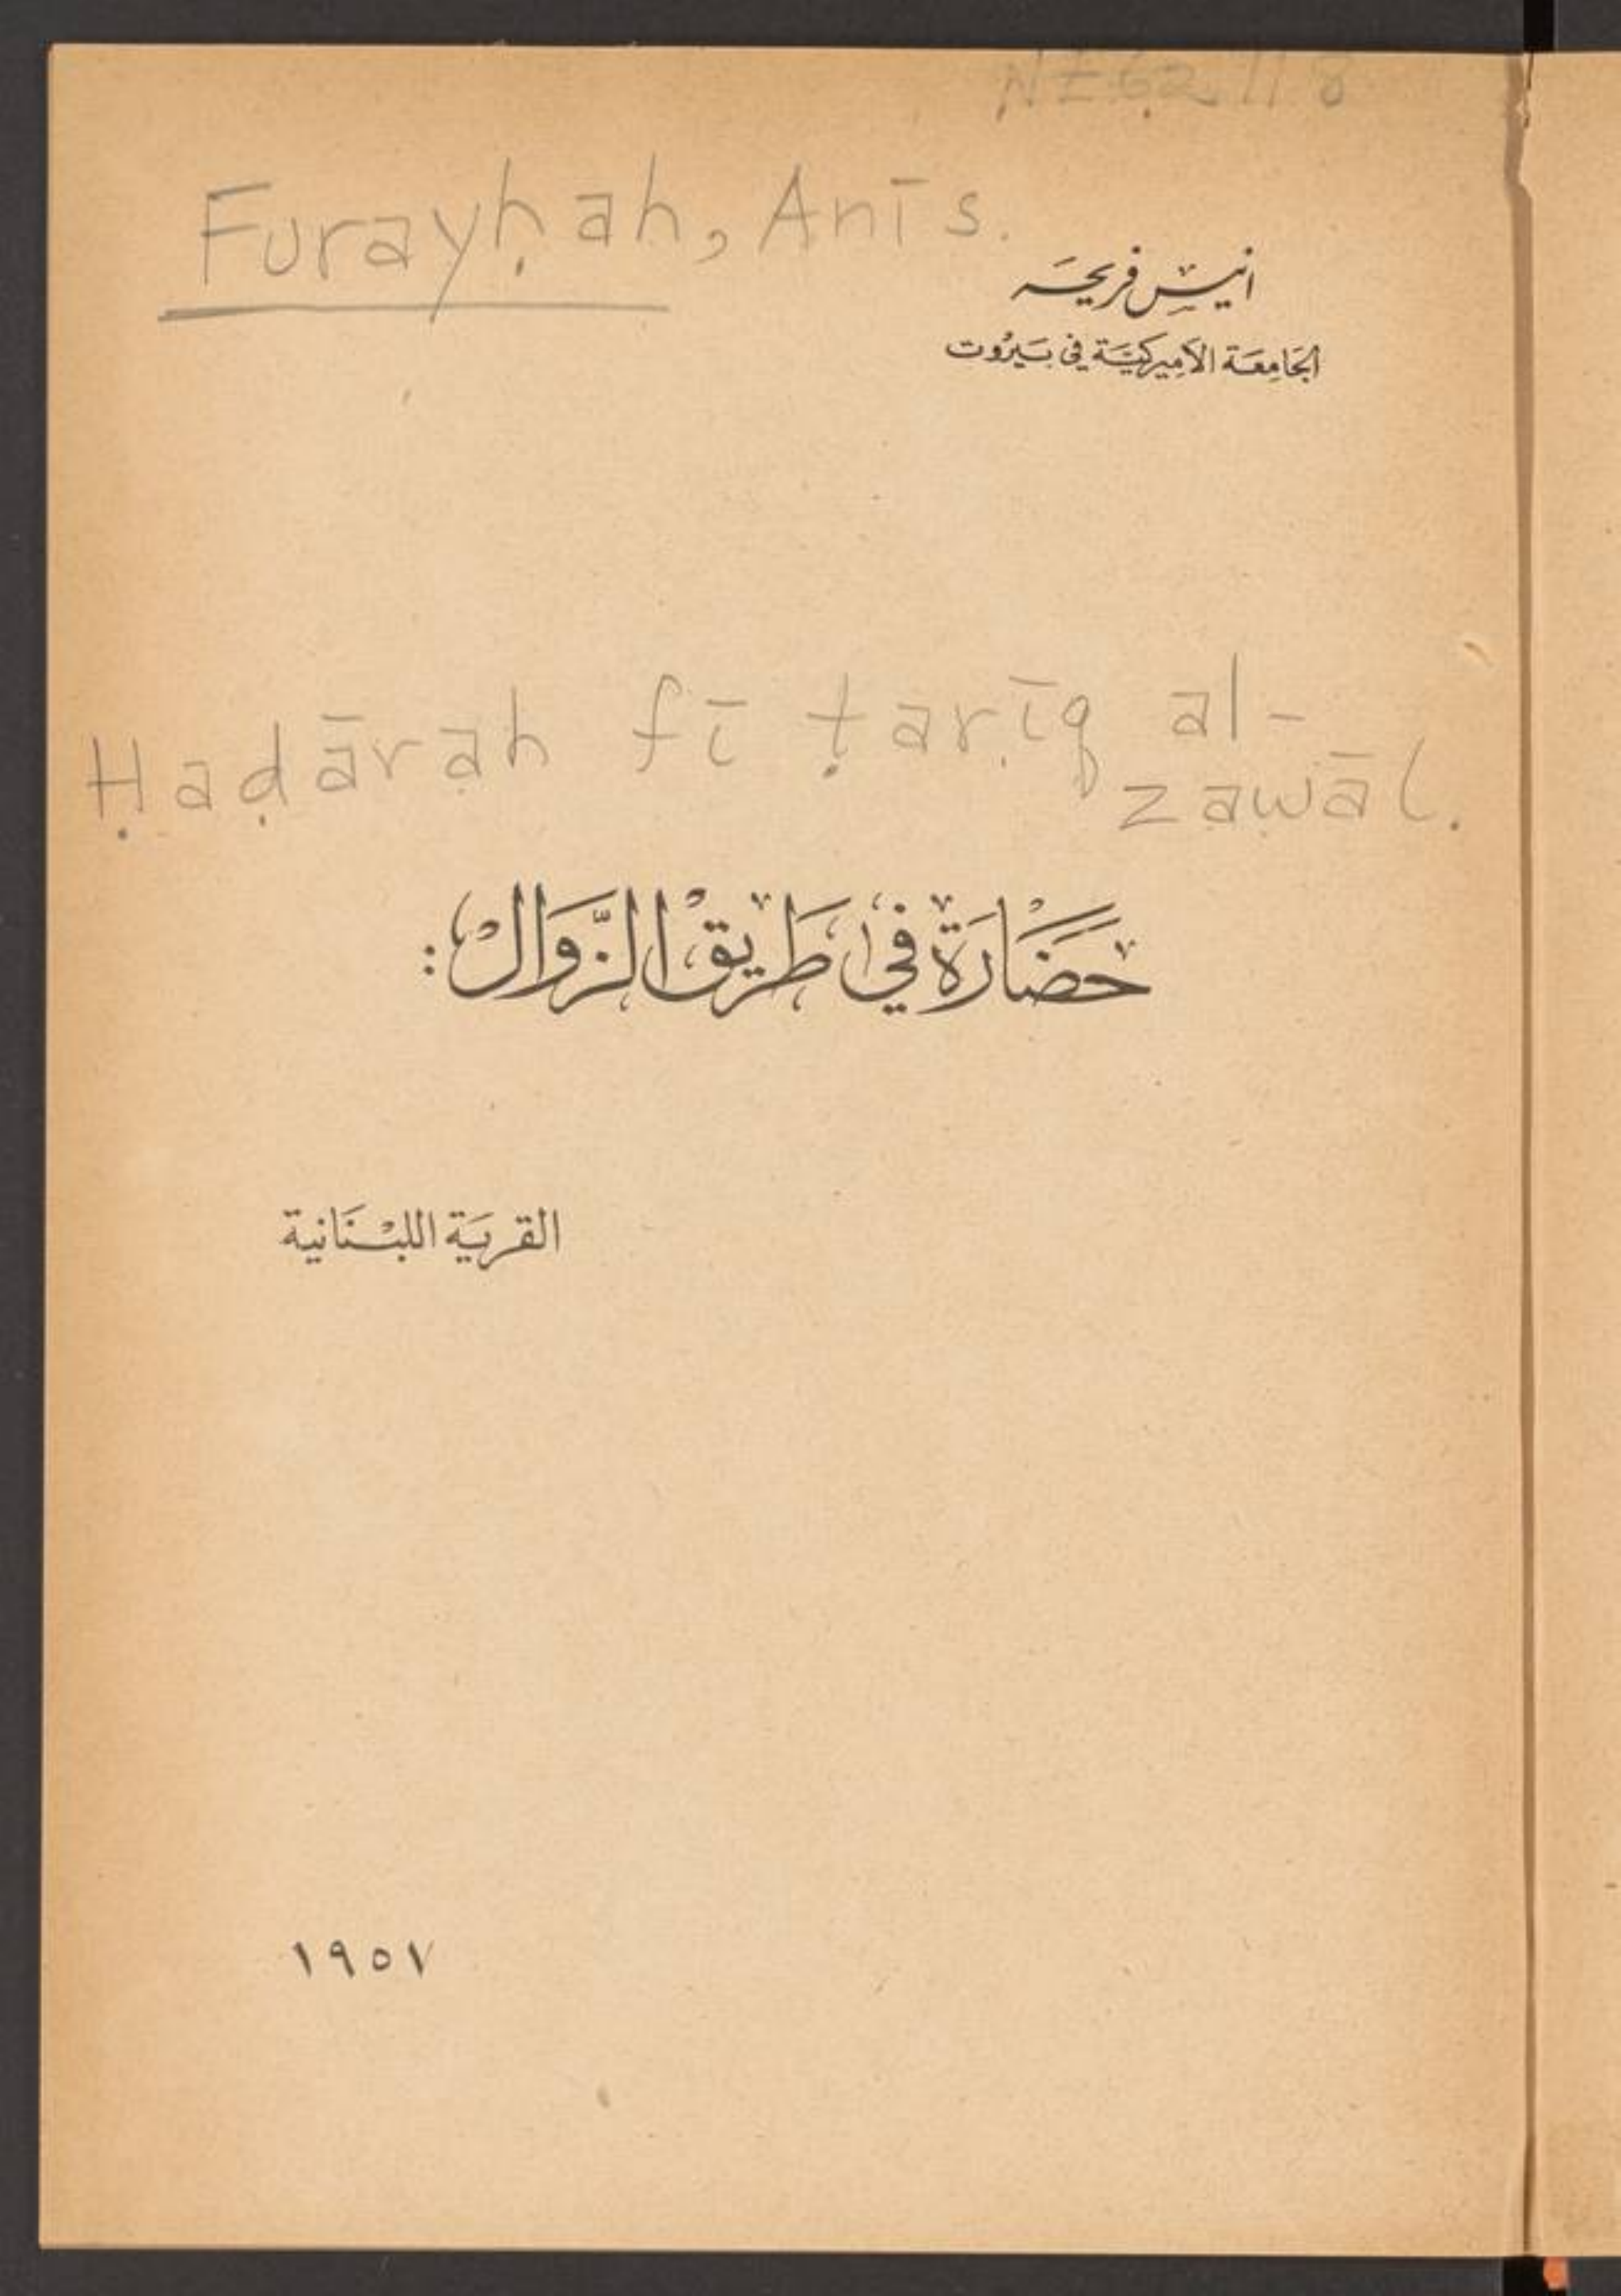 NE 62118
Furayḥah, Anīs.
انيس فريحه
الجَامِعَة الأميركيَّة في بَيْرُوت
Ḥaḍārah fī ṭarīq al-
zawāl.
حَضَارَة في طَريق الزَّوَالْ :
القريَة اللبْنَانية
١٩٥٧